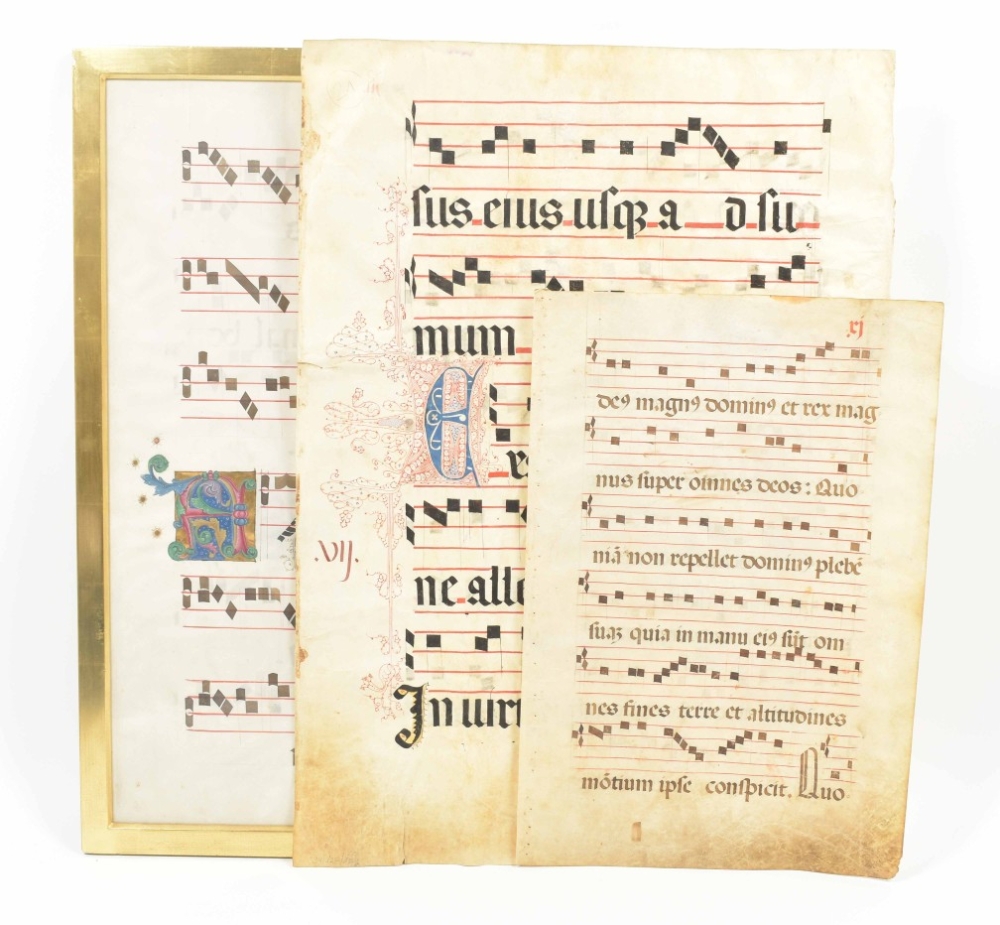 sus eius usqꝫ a d su
mum
.VIJ.
ne alle
In uirt
xj
deꝰ magnꝰ dominꝰ et rex mag
nus super omnes deos : Quo
niā non repellet dominꝰ plebē
suaꝫ quia in manu eiꝰ sūt om
nes fines terre et altitudines
mōtium ipse conspicit. Quo